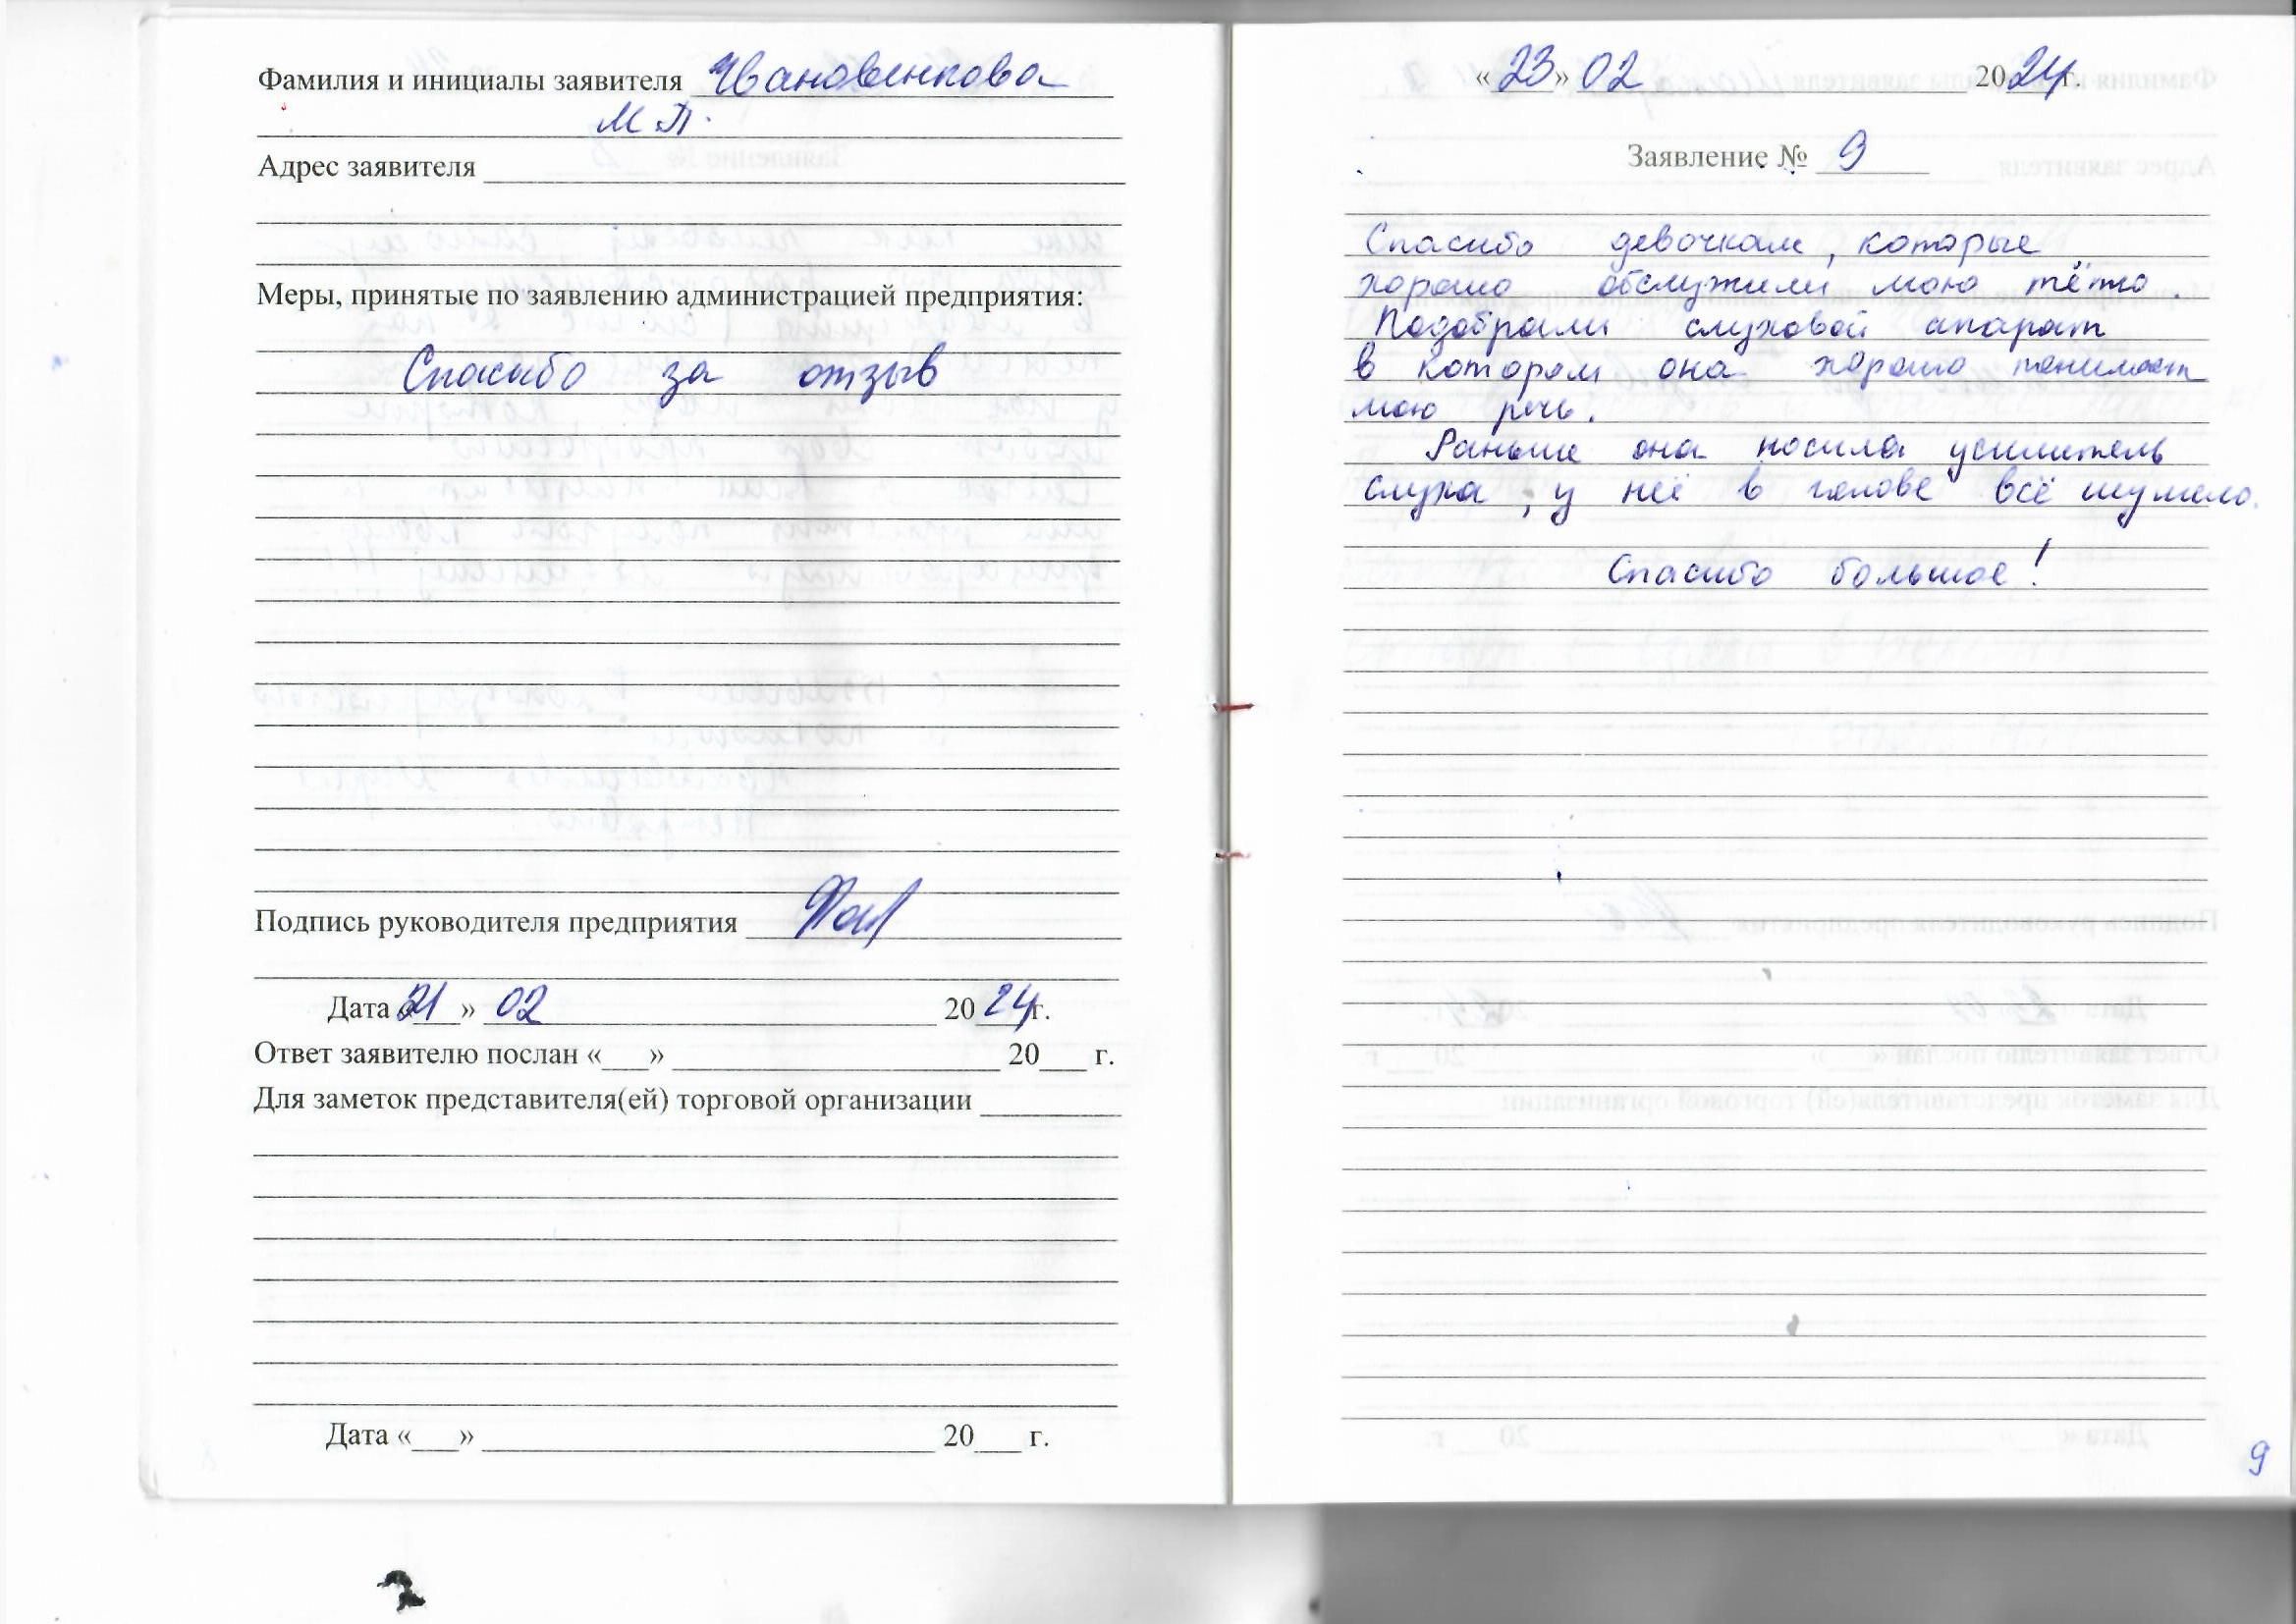 Фамилия и инициалы заявителя Ивановенкова
М.П.
Адрес заявителя
Меры, принятые по заявлению администрацией предприятия:
Спасибо за отзыв
Подпись руководителя предприятия
Дата «21» 02 2024 г.
Ответ заявителю послан «___» 20___ г.
Для заметок представителя(ей) торговой организации
Дата «___» 20___ г.
«23» 02 2024 г.
Заявление № 9
Спасибо девочкам, которые
хорошо обслужили мою тётю.
Подобрали слуховой апарат
в котором она хорошо понимает
мою речь.
Раньше она носила усилитель
слуха, у неё в голове всё шумело.
Спасибо большое!
9